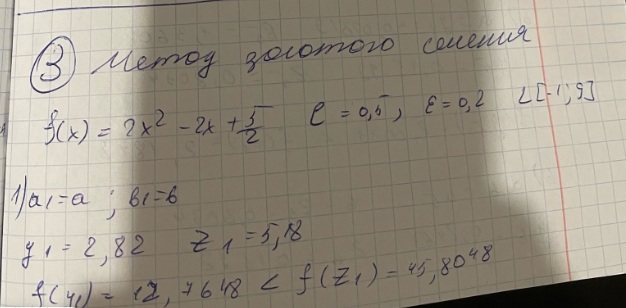 ③ Метод золотого сечения
f(x) = 2x² - 2x + 5/2 ℓ = 0,5, ε = 0,2 L[-1; 9]
1) a₁ = a ; b₁ = b
y₁ = 2,82 z₁ = 5,18
f(y₁) = 12,7648 < f(z₁) = 45,8048